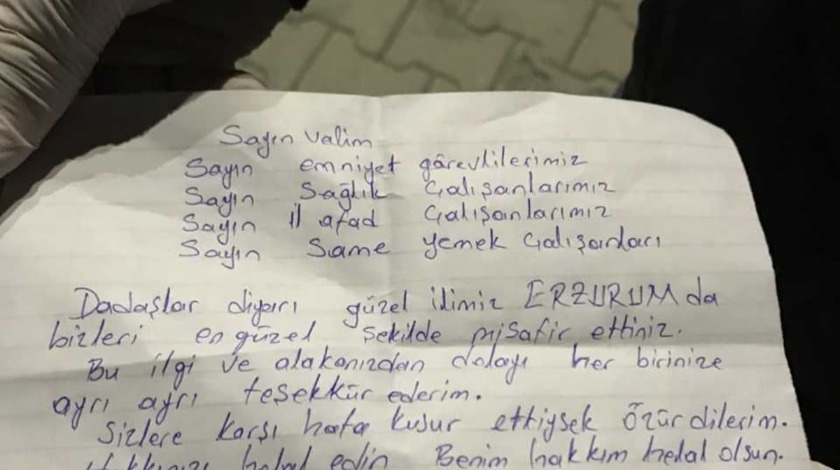 Sayın valim
Sayın emniyet görevlilerimiz
Sayın Sağlık Çalışanlarımız
Sayın il afad Çalışanlarımız
Sayın Same yemek Çalışanları
Dadaşlar diyarı güzel ilimiz ERZURUMda
bizleri en güzel şekilde misafir ettiniz.
Bu ilgi ve alakanızdan dolayı her birinize
ayrı ayrı teşekkür ederim.
Sizlere karşı hata kusur ettiysek özür dilerim.
Hakkınızı helal edin Benim hakkım helal olsun.